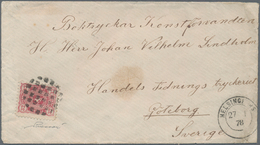 Boktryckar Konstförvandten
H. Herr Johan Vilhelm Lindholm
Handels Tidnings tryckeriet
Göteborg
Sverige
HELSINGF
27
78